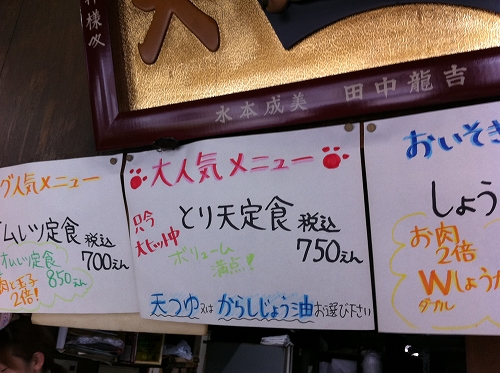 水本成美 田中龍吉
グ人気メニュー
ムレツ定食 税込
700えん
オムレツ定食
850えん
肉と玉子
2倍!
大人気メニュー
只今
大ヒット中
とり天定食 税込
750えん
ボリューム
満点!
天つゆ又はからしじょう油お選び下さい
おいそぎ
しょう
お肉
2倍
Wしょうが
ダブル